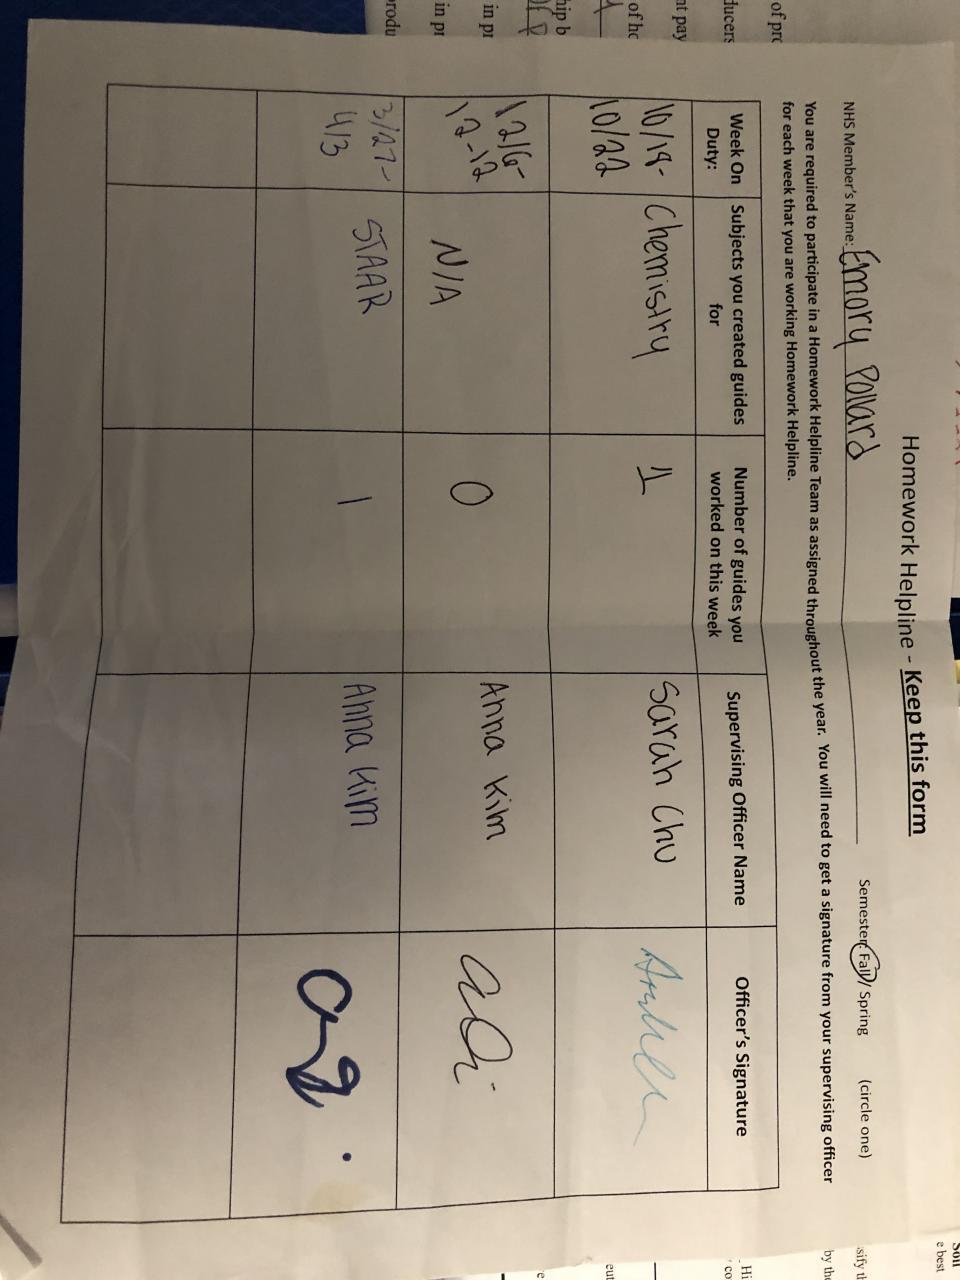 Homework Helpline - Keep this form
NHS Member's Name: Emory Pollard Semester: Fall / Spring (circle one)
You are required to participate in a Homework Helpline Team as assigned throughout the year. You will need to get a signature from your supervising officer
for each week that you are working Homework Helpline.
Week On Duty:
Subjects you created guides for
Number of guides you worked on this week
Supervising Officer Name
Officer's Signature
10/18-
10/22
Chemistry
1
Sarah Chu
12/6-
12-12
N/A
0
Anna Kim
3/27-
4/3
STAAR
1
Anna Kim
of pro
ducers
nt pay
of ho
hip b
in pr
in pr
produ